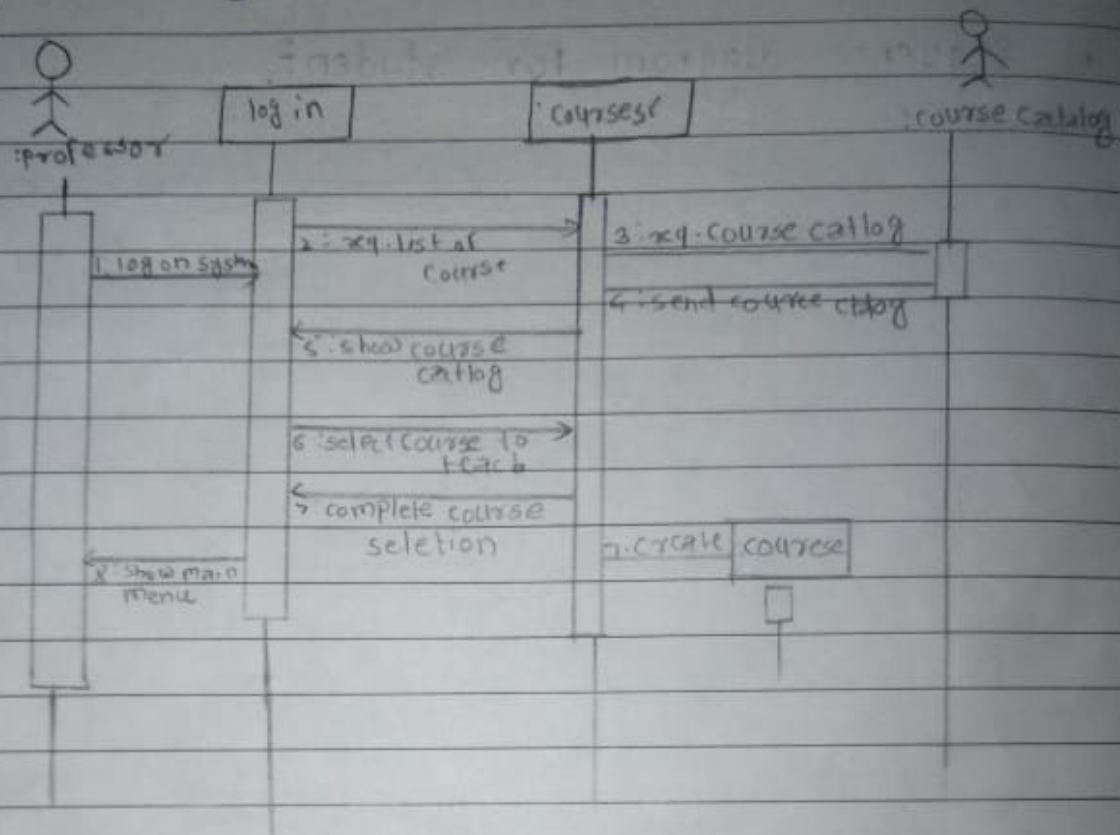 log in
: courses
: course catalog
:professor
1. log on system
2: req. list of
course
3: req. course catlog
4: send cource ctlog
5: show course
catlog
6: select course to
teach
7 complete course
seletion
7. create
courese
8: show main
menu